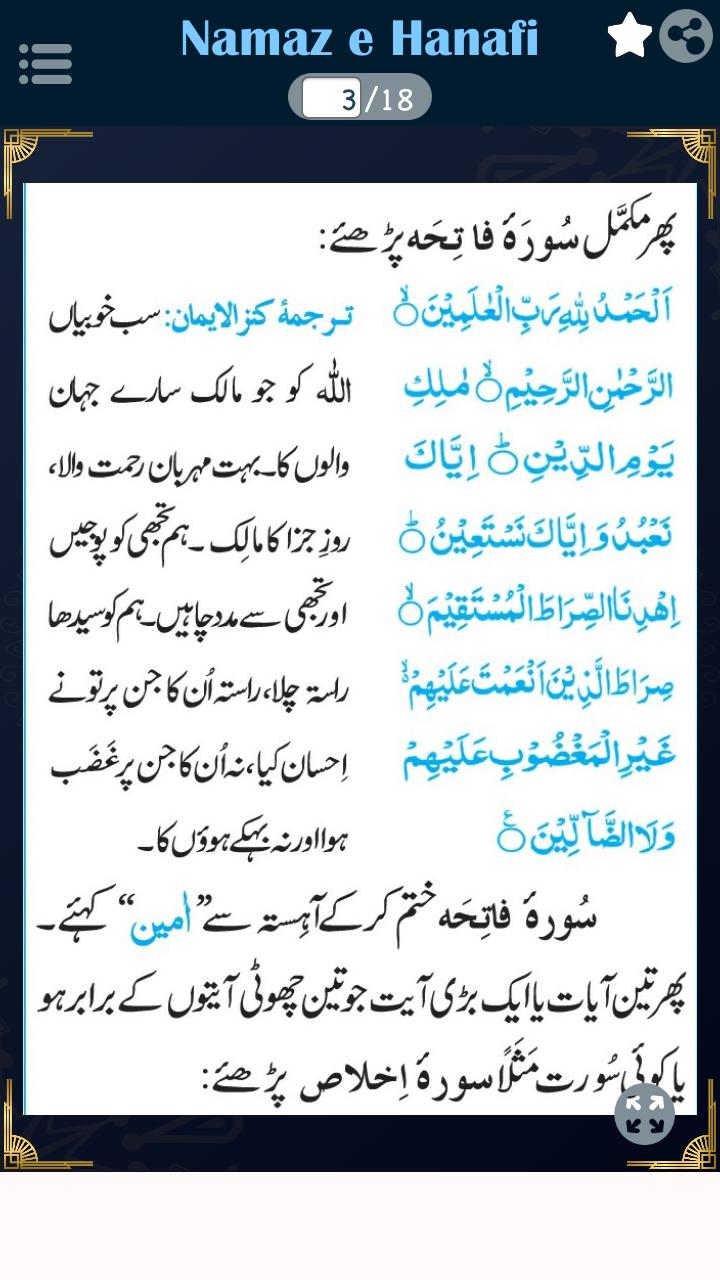 Namaz e Hanafi
3/18
پھر مکمَّل سُورَۂ فَاتِحَہ پڑھئے:
اَلْحَمْدُ لِلّٰهِ رَبِّ الْعٰلَمِیْنَ ۙ ترجمۂ کنز الایمان: سب خوبیاں
الرَّحْمٰنِ الرَّحِیْمِ ۙ مٰلِكِ اللّٰہ کو جو مالک سارے جہان
یَوْمِ الدِّیْنِ ؕ اِیَّاكَ والوں کا۔ بہت مہربان رحمت والا،
نَعْبُدُ وَ اِیَّاكَ نَسْتَعِیْنُ ؕ روزِ جزا کا مالِک۔ ہم تجھی کو پوجیں
اِهْدِنَا الصِّرَاطَ الْمُسْتَقِیْمَ ۙ اور تجھی سے مدد چاہیں۔ ہم کو سیدھا
صِرَاطَ الَّذِیْنَ اَنْعَمْتَ عَلَیْهِمْ ۙ راستہ چلا، راستہ اُن کا جن پر تو نے
غَیْرِ الْمَغْضُوْبِ عَلَیْهِمْ اِحسان کیا، نہ اُن کا جن پر غَضَب
وَ لَا الضَّآلِّیْنَ ۠ ہوا اور نہ بہکے ہوؤں کا۔
سُورۂ فَاتِحَہ ختم کر کے آہِستہ سے ”اٰمین“ کہئے۔
پھر تین آیات یا ایک بڑی آیت جو تین چھوٹی آیتوں کے برابر ہو
یا کوئی سُورت مَثَلًا سورۂ اِخلاص پڑھئے: